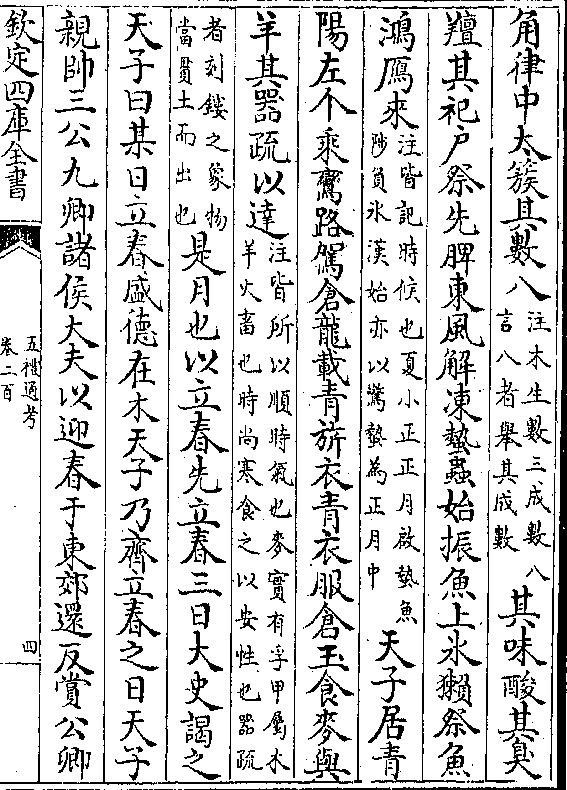 角律中太簇其數八注木生數三成數八言八者舉其成數其味酸其臭
羶其祀户祭先脾東風解凍蟄蟲始振魚上氷獺祭魚
鴻鴈來注皆記時候也夏小正正月啟蟄魚陟負氷漢始亦以驚蟄為正月中天子居青
陽左个乘鸞路駕倉龍載青旂衣青衣服倉玉食麥與
羊其器疏以達注皆所以順時氣也麥實有孚甲屬木羊火畜也時尚寒食之以安性也器疏
者刻鏤之象物當貫土而出也是月也以立春先立春三日大史謁之
天子曰某日立春盛德在木天子乃齊立春之日天子
親帥三公九卿諸侯大夫以迎春于東郊還反賞公卿
欽定四庫全書
五禮通考
卷二百
四